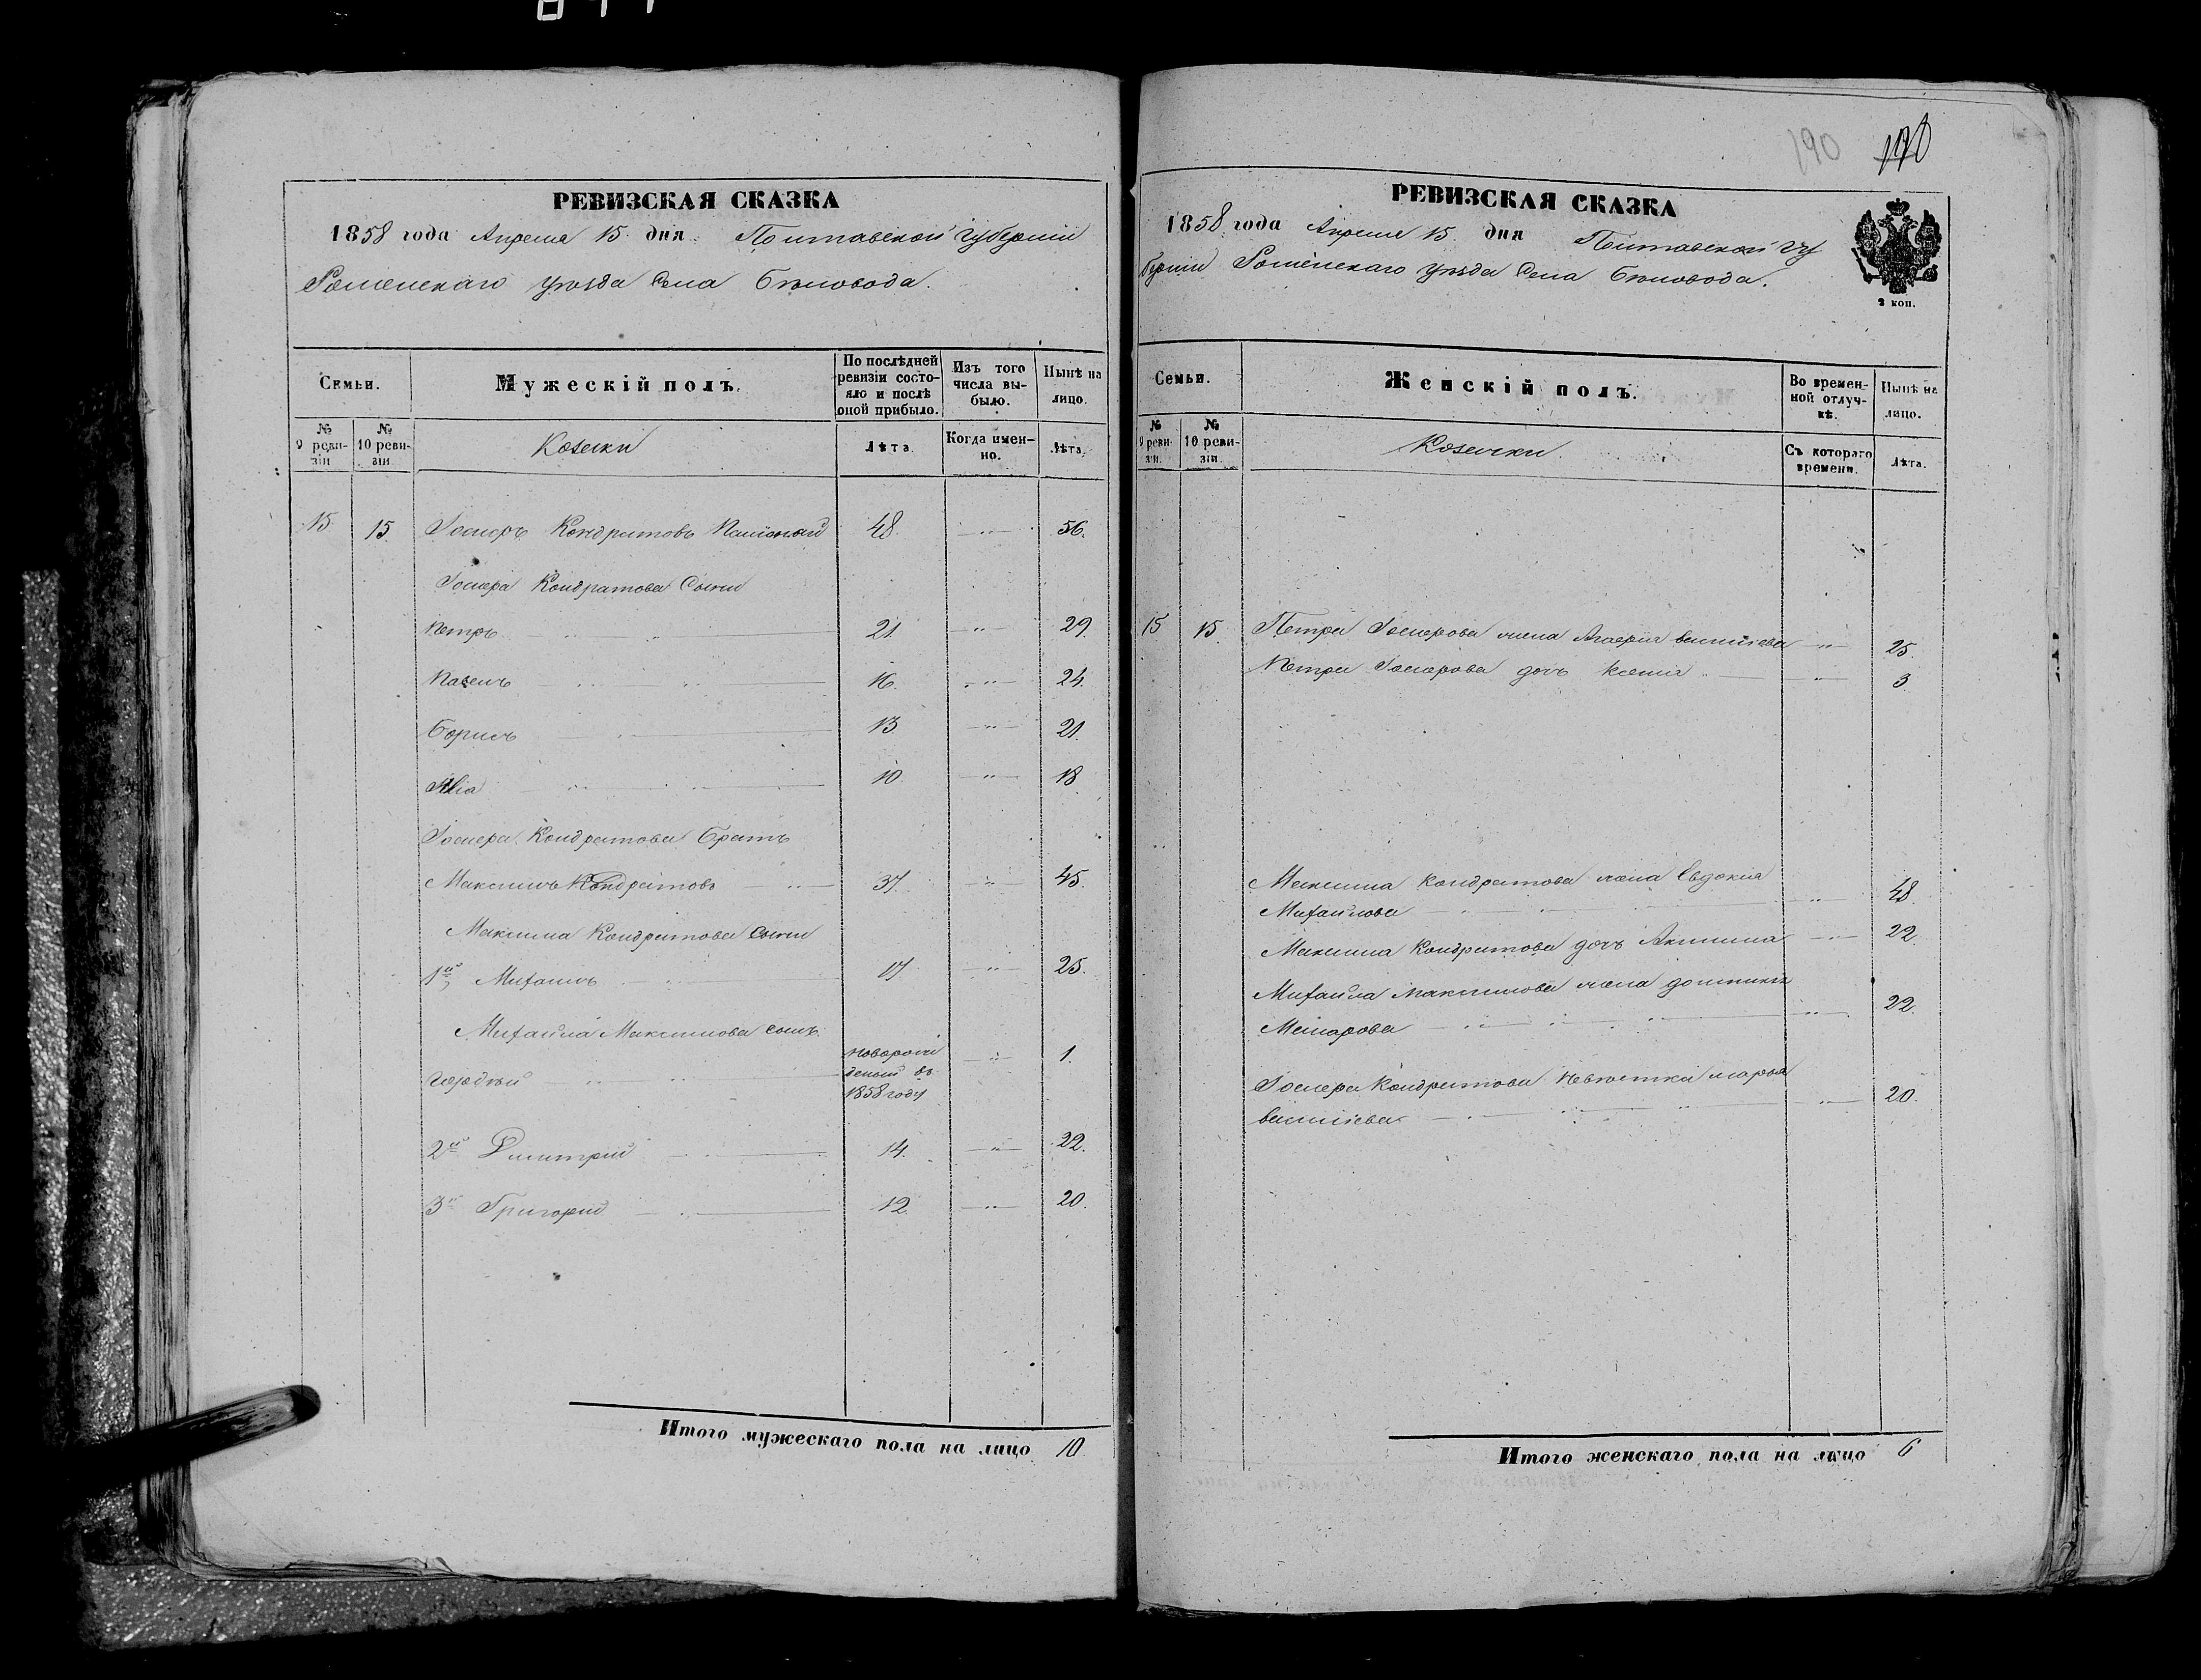 190
РЕВИЗСКАЯ СКАЗКА
1858 года Апреля 15 дня Полтавской губернии
Роменскаго уѣзда Села Бѣловода.
Семьи.
Мужескій полъ.
По послѣдней ревизіи состояло и послѣ оной прибыло.
Изъ того числа выбыло.
Нынѣ на лицо.
№ 9 ревизіи
№ 10 ревизіи
Козаки
Лѣта.
Когда именно.
Лѣта.
15 15 Іосифъ Кондратовъ 48 56.
Кондратова Сыны
Петръ 21 29.
Павелъ 16. 24.
Борисъ 13 21.
Илія 10 18
Кондратова Братъ
Максимъ Кондратовъ 37 45.
Максима Кондратова Сыны
1й Михаилъ 17 25.
Михаила Максимова сынъ
Гордѣй новорожденый въ 1858 году 1.
2й Димитрій 14. 22.
3й Григорий 12 20.
Итого мужескаго пола на лицо 10
РЕВИЗСКАЯ СКАЗКА
1858 года Апреля 15 дня Полтавской гу
берніи Роменскаго уѣзда Села Бѣловода.
2 коп.
Семьи.
Женскій полъ.
Во временной отлучкѣ.
Нынѣ на лицо.
№ 9 ревизіи.
№ 10 ревизіи.
Козачки.
Съ котораго времени.
Лѣта.
15 15. Петра жена Васильева 25.
Петра дочь Ксенія 3
Максима Кондратова жена Евдокія
Михайлова 48.
Максима Кондратова дочь Акилина 22
Михайла Максимова жена
22.
Кондратова невѣстка Марья
Васильева 20.
Итого женскаго пола на лицо 6